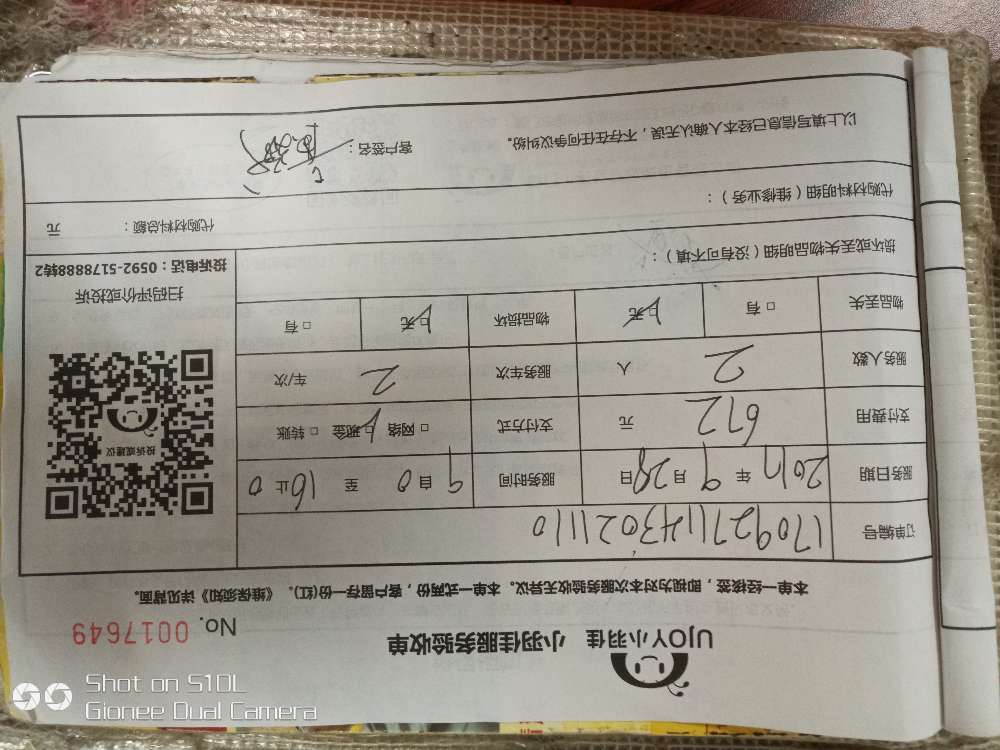 UJOY小羽佳 小羽佳服务验收单
No. 0017649
本单一经核签，即视为对本次服务验收无异议。本单一式两份，客户留存一份(红)。《维保须知》详见背面。
订单编号 17092711430211110
服务日期 2017 年 9 月 28 日 服务时间 9 自 0 至 16 止 0
支付费用 672 元 支付方式 □ 网络 □ 现金 □ 转账
服务人数 2 人 服务车次 2 车/次
物品丢失 □ 有 □ 无 物品损坏 □ 无 □ 有
投诉或建议
扫码评价或投诉
投诉电话：0592-5178888转2
损坏或丢失物品明细（没有可不填）：
代购材料明细（维修业务）：
代购材料总额： 元
以上填写信息已经本人确认无误，不存在任何争议纠纷。 客户签名：
Shot on S10L
Gionee Dual Camera